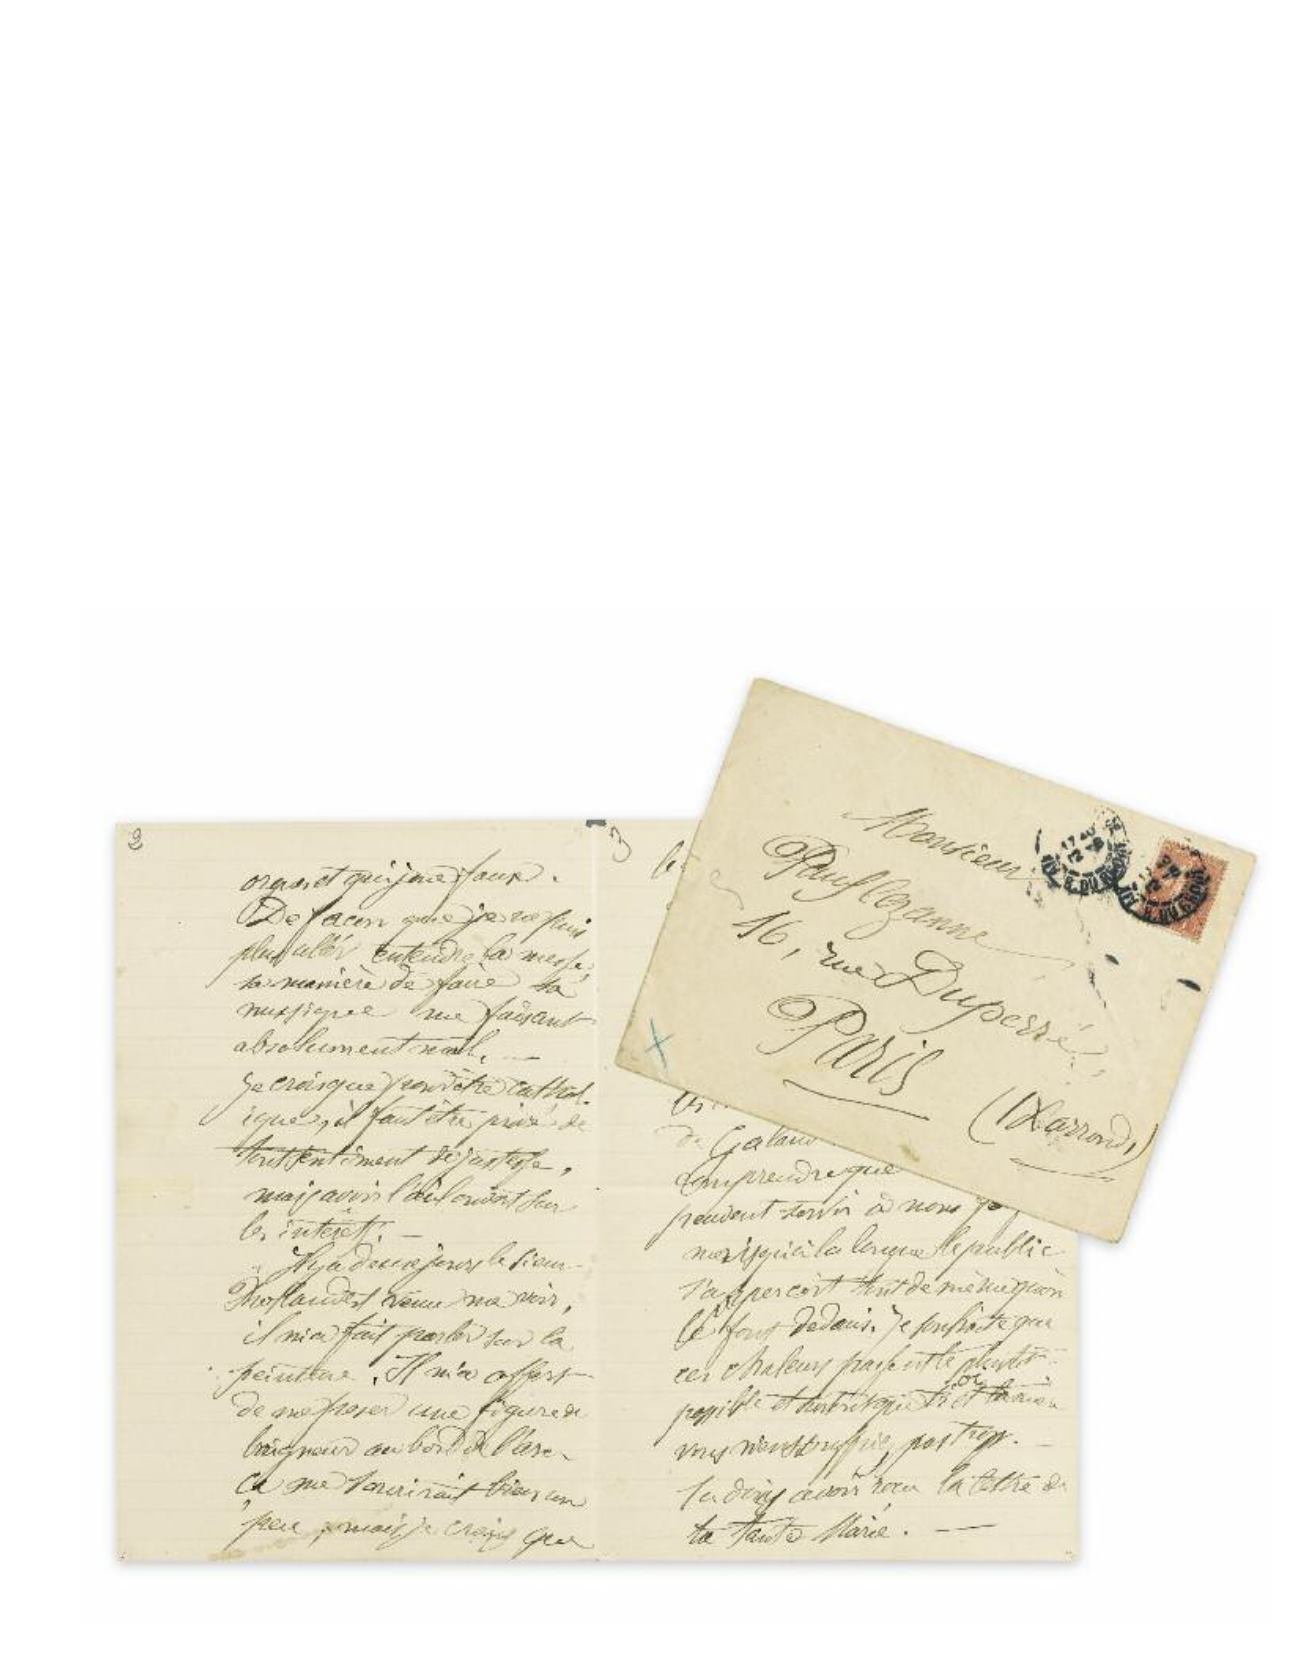 2
orgues et qui joue faux.
De façon que je ne puis
plus aller entendre la messe,
sa manière de faire la
musique me faisant
absolument mal. —
Je crois que pour être cathol-
ique, il faut être privé de
tout sentiment de justesse,
mais avoir l'œil ouvert sur
les intérêts. —
Il y a deux jours le sieur
Rolland est venu me voir,
il m'a fait parler sur la
peinture. Il m'a offert
de me poser une figure de
baigneur au bord de l'Arc.
Ça me sourirait bien un
peu, mais je crains que
3
de Galand
comprendre que
peuvent servir à nous
mais qu'à la longue le public
s'aperçoit tout de même qu'on
le fout dedans. Je souhaite que
ces chaleurs passent le plus tôt
possible et
vous n'en souffriez pas trop.
Tu dois avoir reçu la lettre de
ta tante Marie. —
Monsieur
Paul Cezanne
16, rue Duperré,
Paris
(IX arrond,)